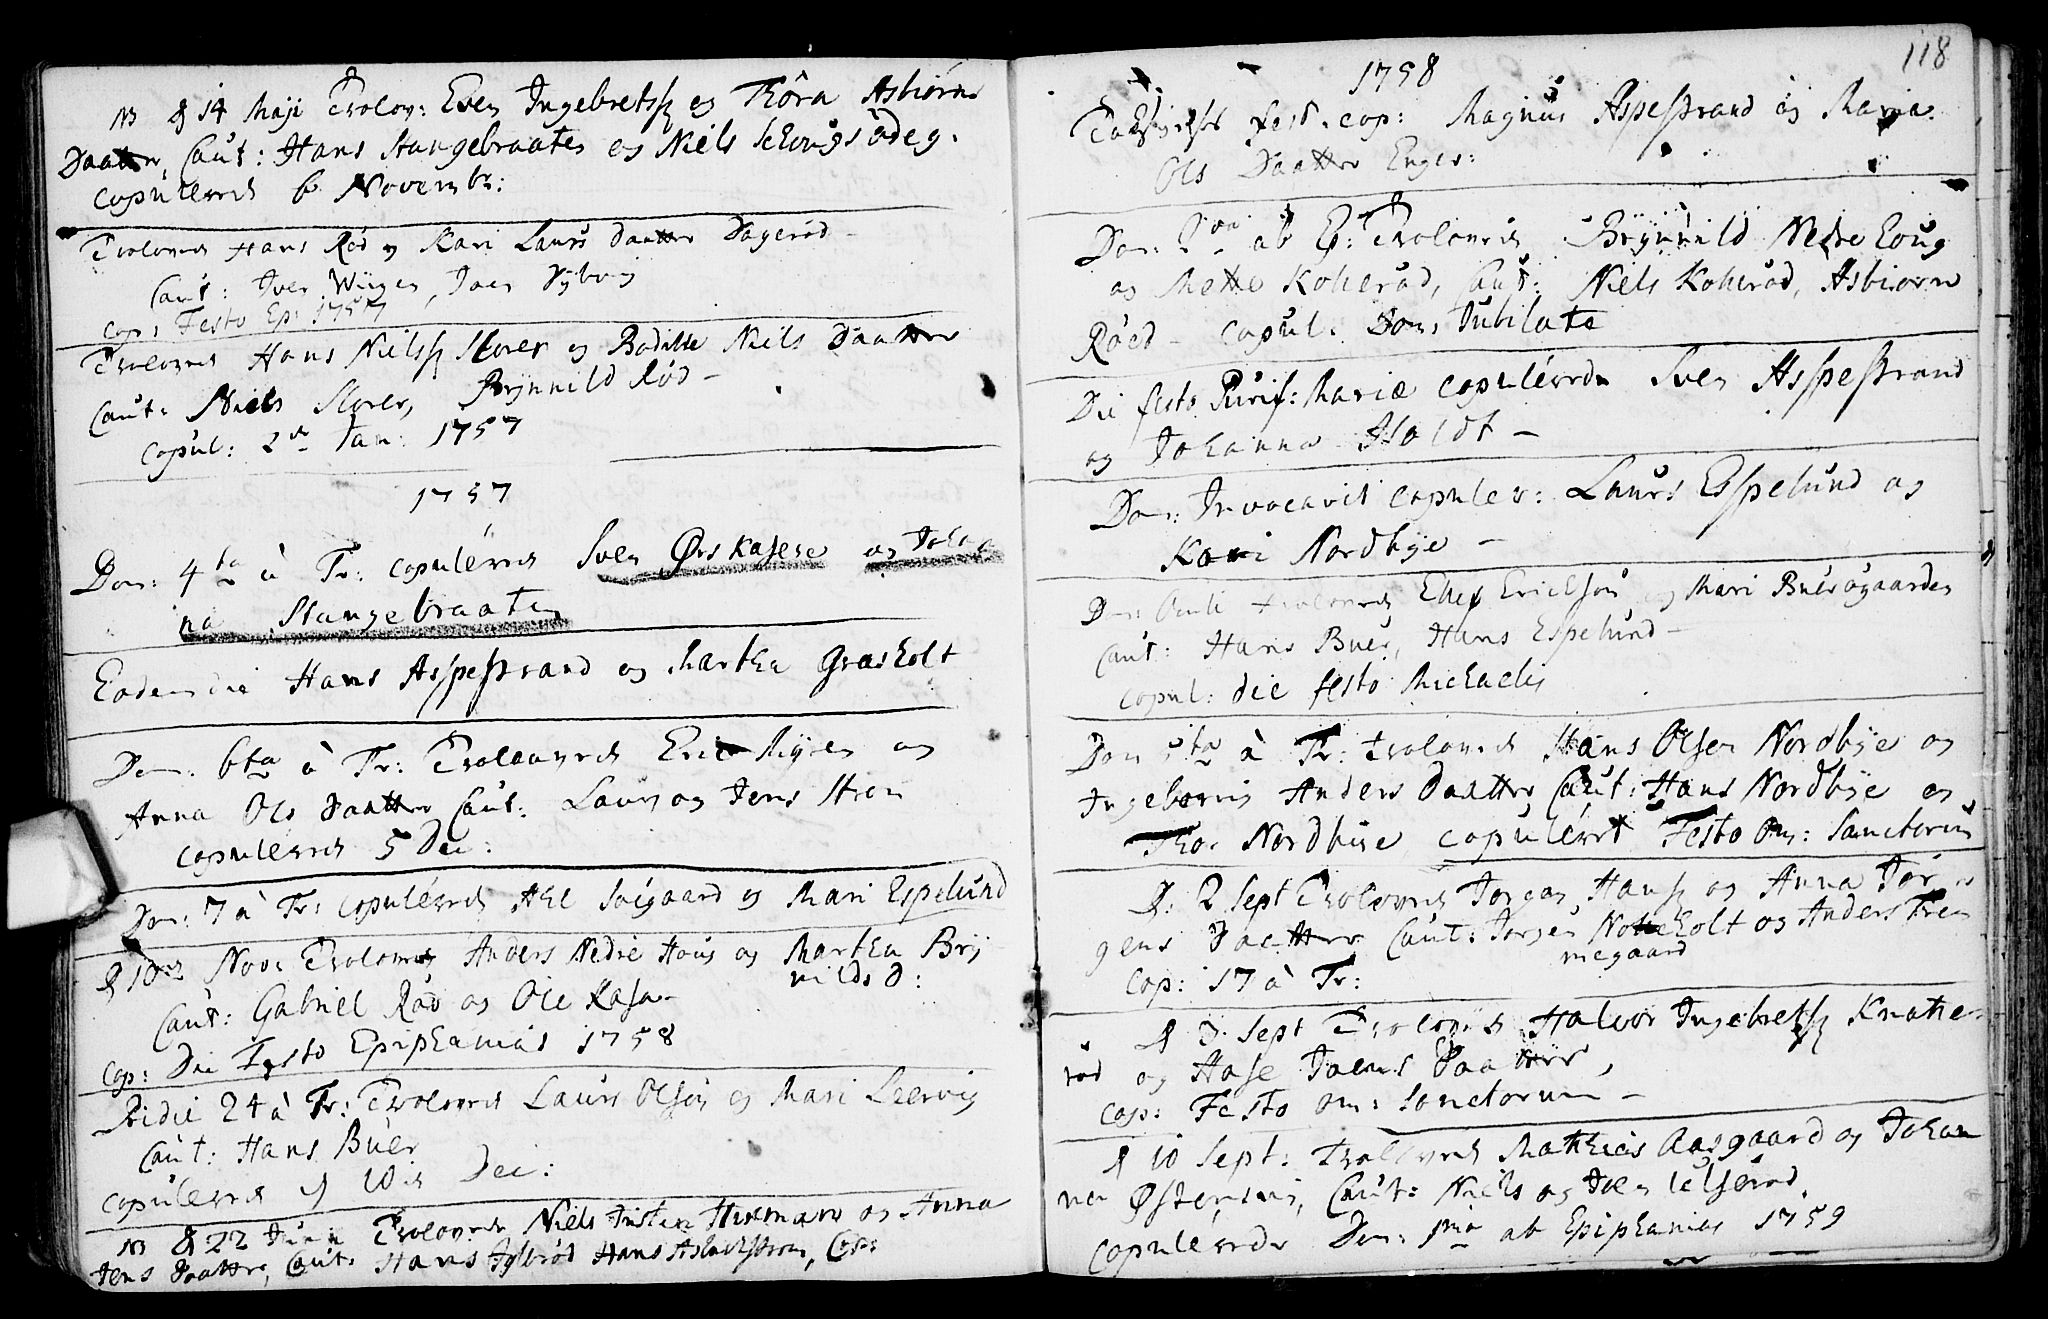 NB d 14 Maji Trolov: Even Ingebretss og Thora Asbiörns
Daatter, Caut: Hans Stangebraaten og Niels
copulerede 6 Novembr:
Trolovede Hans Röd og Kari Laurs Daatter Dageröd
Caut: Iver Wiigen, Joen
cop: Festo Ep: 1757
Trolovede Hans Nielss Storer og Bodille Niels Daatter
Caut: Niels Storer, Brynnild Röd -
copul: 2de Jan: 1757
1757
Dom: 4ta à Tr: copulerede Sven Ørskasene og Joha
na Stangebraaten
Eodem die Hans Aspestrand og Martha Græsholt
Dom: 6ta à Tr: Trolovede Eric Myren og
Anna Ols Daatter Caut: Laurs og Jens Strem
copulerede 5 Dec:
Dom: 7 à Tr: copulerede Abel Soigaard og Mari Espelund
d 10 Nov: Trolovede Anders Nedre Houg og Martha Bry
nilds D:
Caut: Gabriel Röd og Ole Kasa
cop: Die Festo Epiphanias 1758
Pridie 24 à Tr: Trolovede Laurs Olsön og Mari Leervig
Caut: Hans Buer
copulerede d Dec:
NB d 22 Trolovede Niels Hermans og Anna
Jens Daatter, Caut: Hans Hans Cop:
118
1758
fest. cop: Magnus Aspestrand og Maria
Ols Daatter Enger:
Dom: ab Ep: Trolovede Brynnild Nedre Houg
og Mette Kolleröd, Caut: Niels Kolleröd, Asbiörn
Röed - copul: Dom: Jubilate
Die festo Purif: Mariæ copulerede Sven Aspestrand
og Johanna Holdt -
Dom: Invocavit copuler: Laurs Espelund og
Kari Nordbye -
Dom: trolovede Erichsön og Mari
Caut: Hans Buer, Hans Espelund -
copul: die festo Michaelis
Dom 5ta à Tr: trolovede Hans Olsen Nordbye og
Ingeborrig Anders Daatter, Caut: Hans Nordbye og
Thor Nordbye copulert Festo Om: Sanctorum
d: 2 Sept Trolovede Jörgen Hanss og Anna Jör
gens Daatter Caut: Jörgen Noteholt og Anders Trem
megaard
cop: 17 à Tr:
d 3 Sept Trolovede Halvor Ingebretss Knatte
röd og Aase Joens Daatter,
cop: Festo om: Sanctorum -
d 10 Sept: Trolovede Mathias Aasgaard og Johan
ne Østerviig, Caut: Niels og Joen Ulseröd,
copulerede Dom: 1ma ab Epiphanias 1759